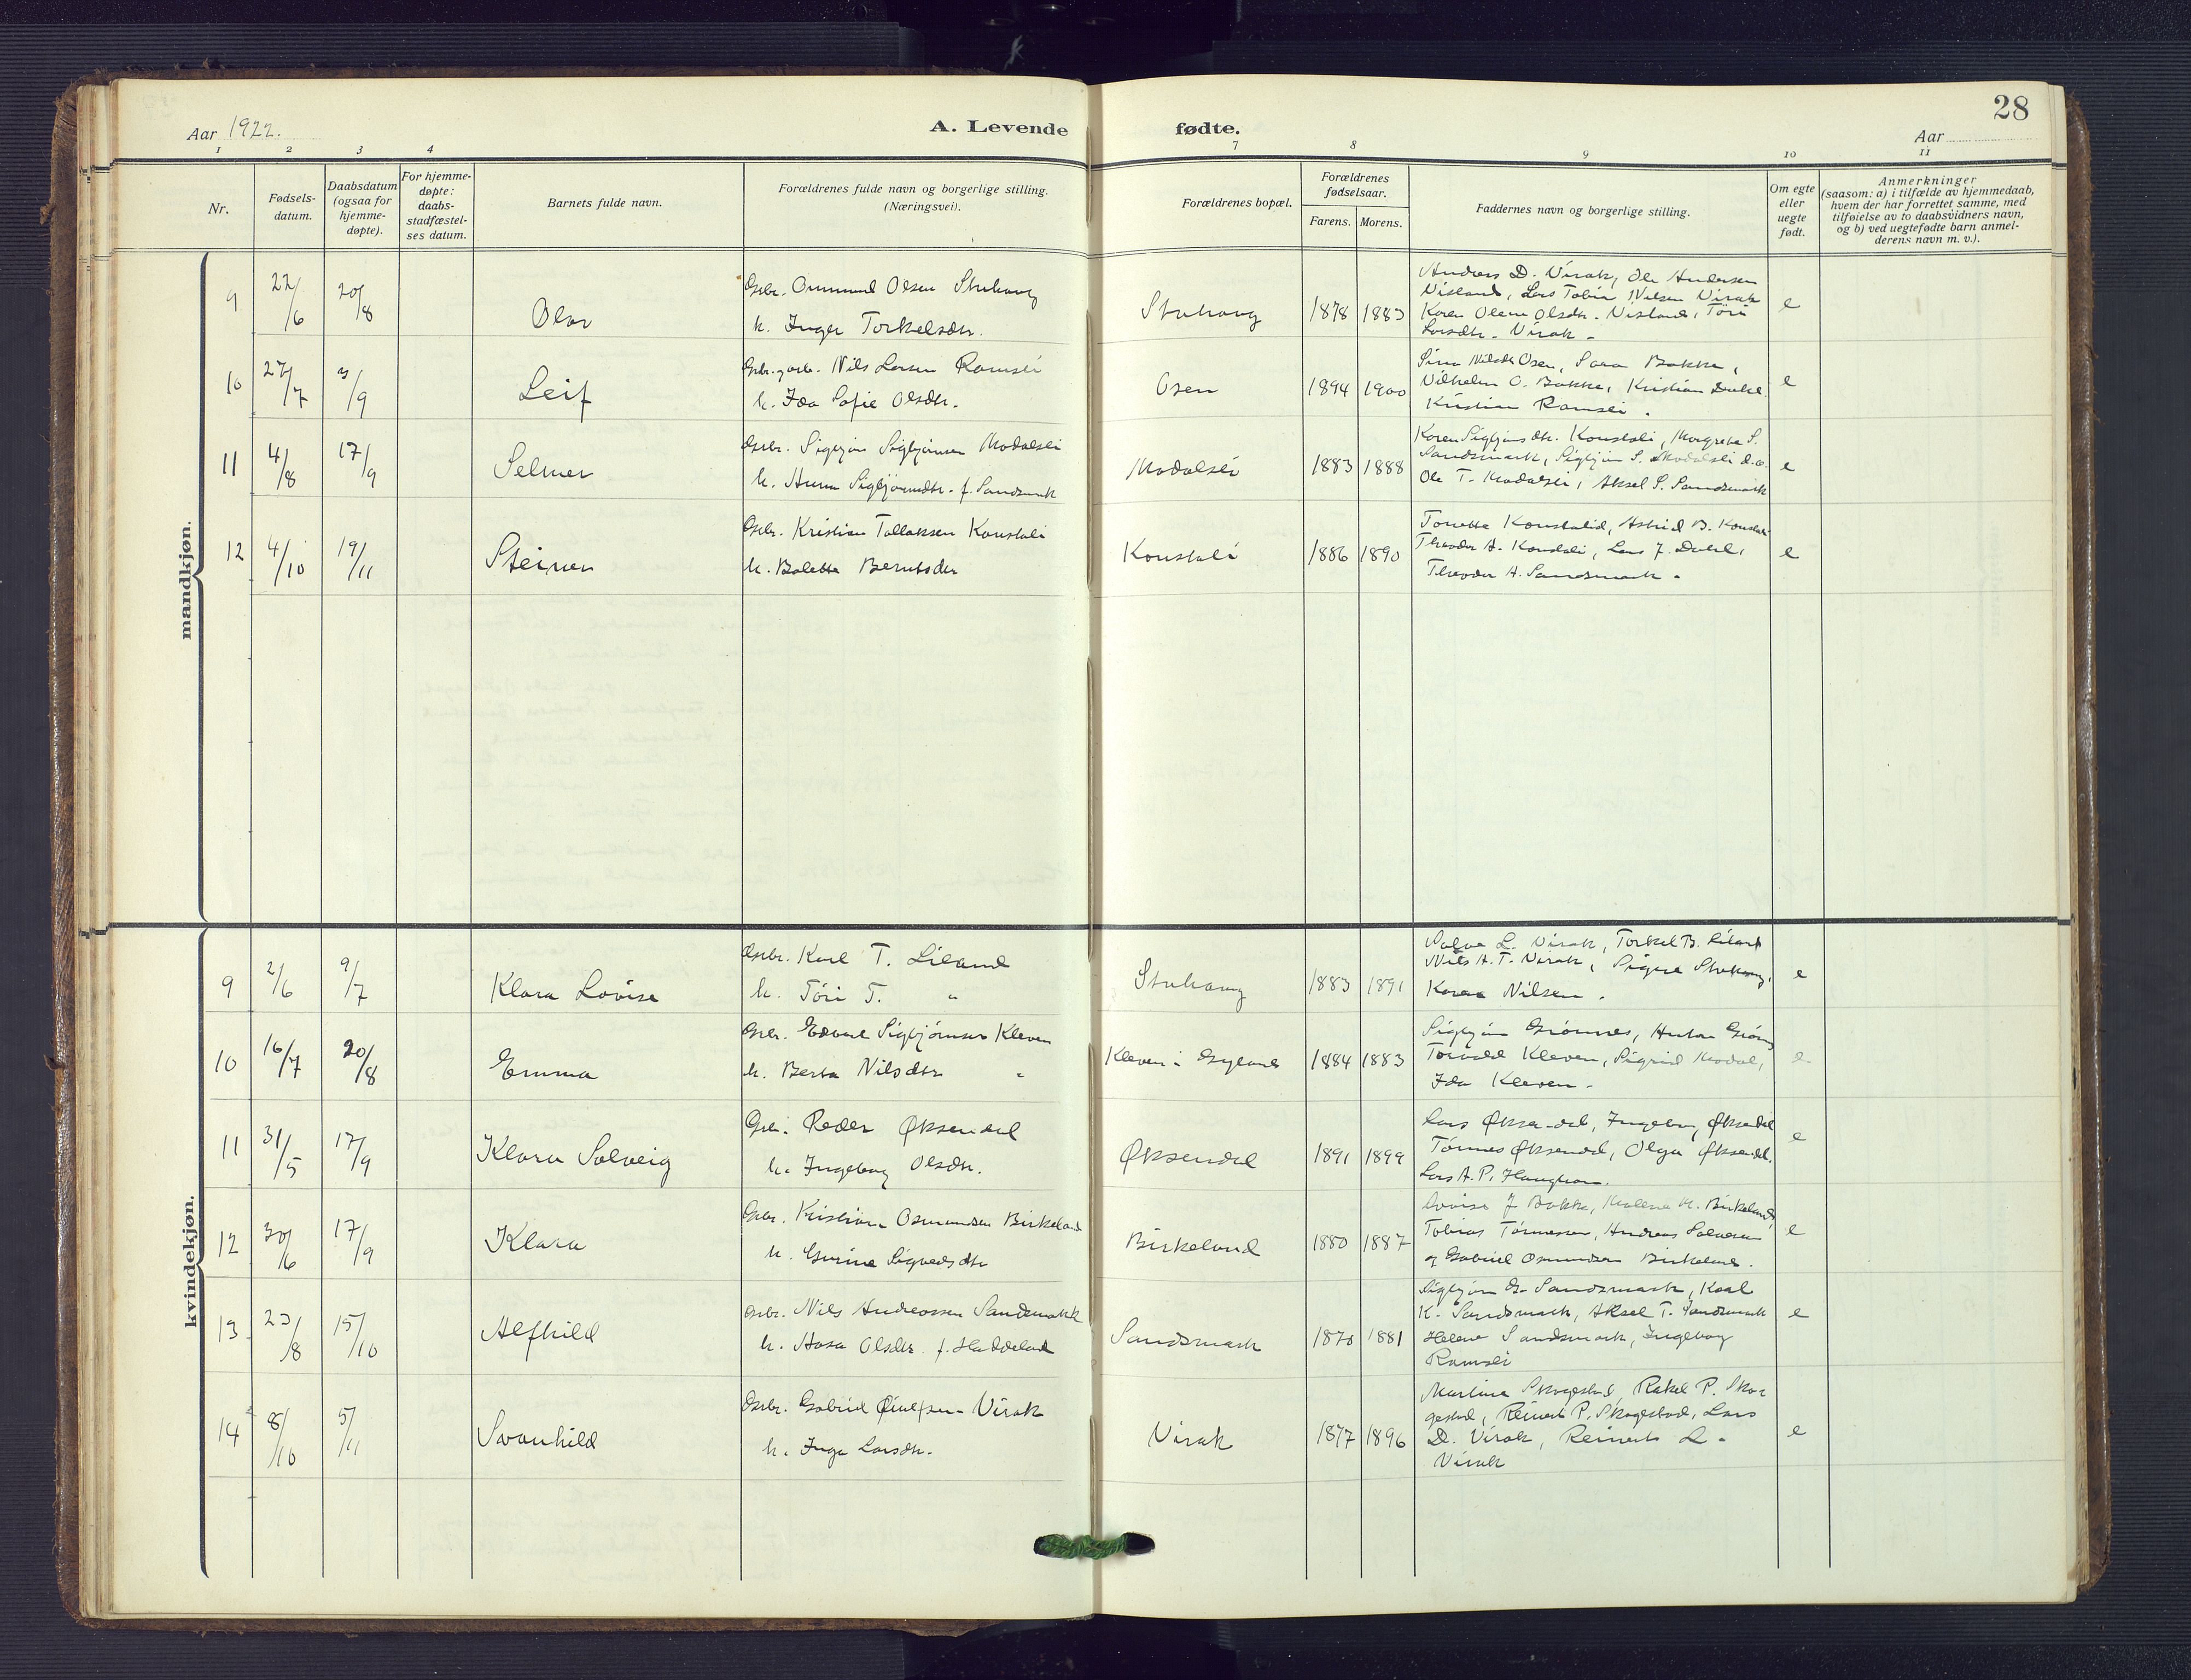 28
Aar 1922.
A. Levende fødte.
Aar
1 2 3 4 7 8 9 10 11
Nr.
Fødsels-
datum.
Daabsdatum
(ogsaa for
hjemme-
døpte).
For hjemme-
døpte:
daabs-
stadfæstel-
ses datum.
Barnets fulde navn.
Forældrenes fulde navn og borgerlige stilling.
(Næringsvei).
Forældrenes bopæl.
Forældrenes
fødselsaar.
Farens. Morens.
Faddernes navn og borgerlige stilling.
Om egte
eller
uegte
født.
Anmerkninger
(saasom: a) i tilfælde av hjemmedaab,
hvem der har forrettet samme, med
tilføielse av to daabsvidners navn,
og b) ved uegtefødte barn anmel-
derens navn m. v.).
mandkjøn.
9 22/6 20/8 Olav
Gbr. Ommund Olsen Stuhaug
h. Inger Torkelsdtr.
Stuhaug 1878 1883
Anders D. Virak, Ole Andersen
Nisland, Lars Tobia Nilsen Virak
Karen Olene Olsdtr. Nisland, Töri
Larsdtr. Virak.
e
10 27/7 3/9 Leif
Nils Larsen Ramsei
h. Ida Sofie Olsdtr.
Osen 1894 1900
Sina Nilsdtr Osen, Sara Bakke,
Vilhelm O. Bakke, Kristian
Kristian Ramsei.
e
11 4/8 17/9 Selmer
Gbr. Sigbjørn Sigbjørnsen Modalsli
h. Anna Sigbjørnsdtr. f. Sandsmark
Modalsli 1883 1888
Karen Sigbjørnsdtr. Konstali, Margrete S.
Sandsmark, Sigbjørn S. Modalsli d.a.
Ole T. Modalsli, Aksel S. Sandsmark
e
12 4/10 19/11 Steinar
Gbr. Kristian Tollaksen Konstali
h. Bolette Berntsdtr
Konstali 1886 1890
Tonette Konstali, Astrid B. Konstali
Theodor A. Konstali, Lars J.
Theodor A. Sandsmark.
e
kvindekjøn.
9 2/6 9/7 Klara Lovise
Gbr. Karl T. Liland
h. Töri T. "
Stuhaug 1883 1891
Salve L. Virak, Torkel B. Liland
Nils A. T. Virak, Signe Stuhaug,
Karen Nilsen.
e
10 16/7 20/8 Emma
Gbr. Edvard Sigbjørnsen Kleven
h. Berta Nilsdtr "
Kleven i Gyland 1884 1883
Sigbjørn Grönnes, Anton Grönnes
Torvald Kleven, Sigrid Modal,
Ida Kleven.
e
11 31/5 17/9 Klara Solveig
Gbr. Peder Øksendal
h. Ingeborg Olsdtr.
Øksendal 1891 1899
Lars Øksendal, Ingeborg Øksendal
Tönnes Øksendal, Olga Øksendal.
Lars A. P. Haughom.
e
12 30/6 17/9 Klara
Gbr. Kristian Osmundsen Birkeland
h. Gurine Sigvedsdtr
Birkeland 1880 1887
Lovise J Bakke, Malene M. Birkeland,
Tobias Tönnessen, Andreas Salvesen
og Gabriel Osmundsen Birkeland.
e
13 23/8 15/10 Alfhild
Gbr. Nils Andreassen Sandsmark
h. Aasa Olsdtr. f. Haddeland
Sandsmark 1870 1881
Sigbjørn G. Sandsmark, Karl
K. Sandsmark, Aksel T. Sandsmark
Helene Sandsmark, Ingeborg
Ramsei
e
14 8/10 5/11 Svanhild
Gbr. Gabriel Virak
h. Inga Larsdtr.
Virak 1877 1896
Martina Skogestad, Rakel P. Sko-
gestad, Reinert P. Skogestad, Lars
D. Virak, Reinert L.
Virak
e